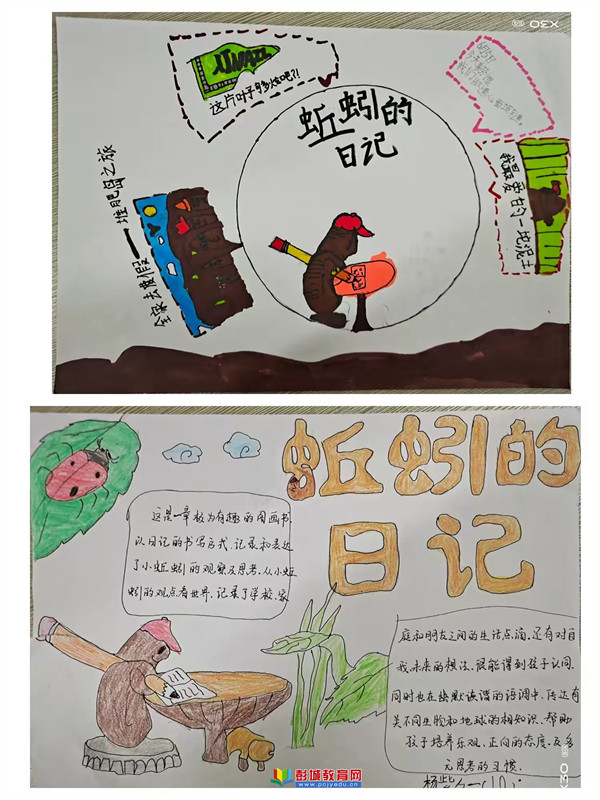 X30
这片叶子多炫吧?!
蚯蚓的
日记
全家去度假——堆肥岛之旅
我最爱的一块泥土
蚯蚓的
日记
这是一章极为有趣的图画书,
以日记的书写方式,记录和表达
了小蚯蚓的观察及思考。从小蚯
蚓的观点看世界,记录了学校、家
庭和朋友之间的生活点滴,还有对自
我未来的想法、很能得到孩子认同。
同时也在幽默诙谐的语调中,传达有
关不同生物和地球的相知识、帮助
孩子培养乐观、正向的态度,及多
元思考的习惯。
X30
彭城教育网
www.pcjyedu.cn